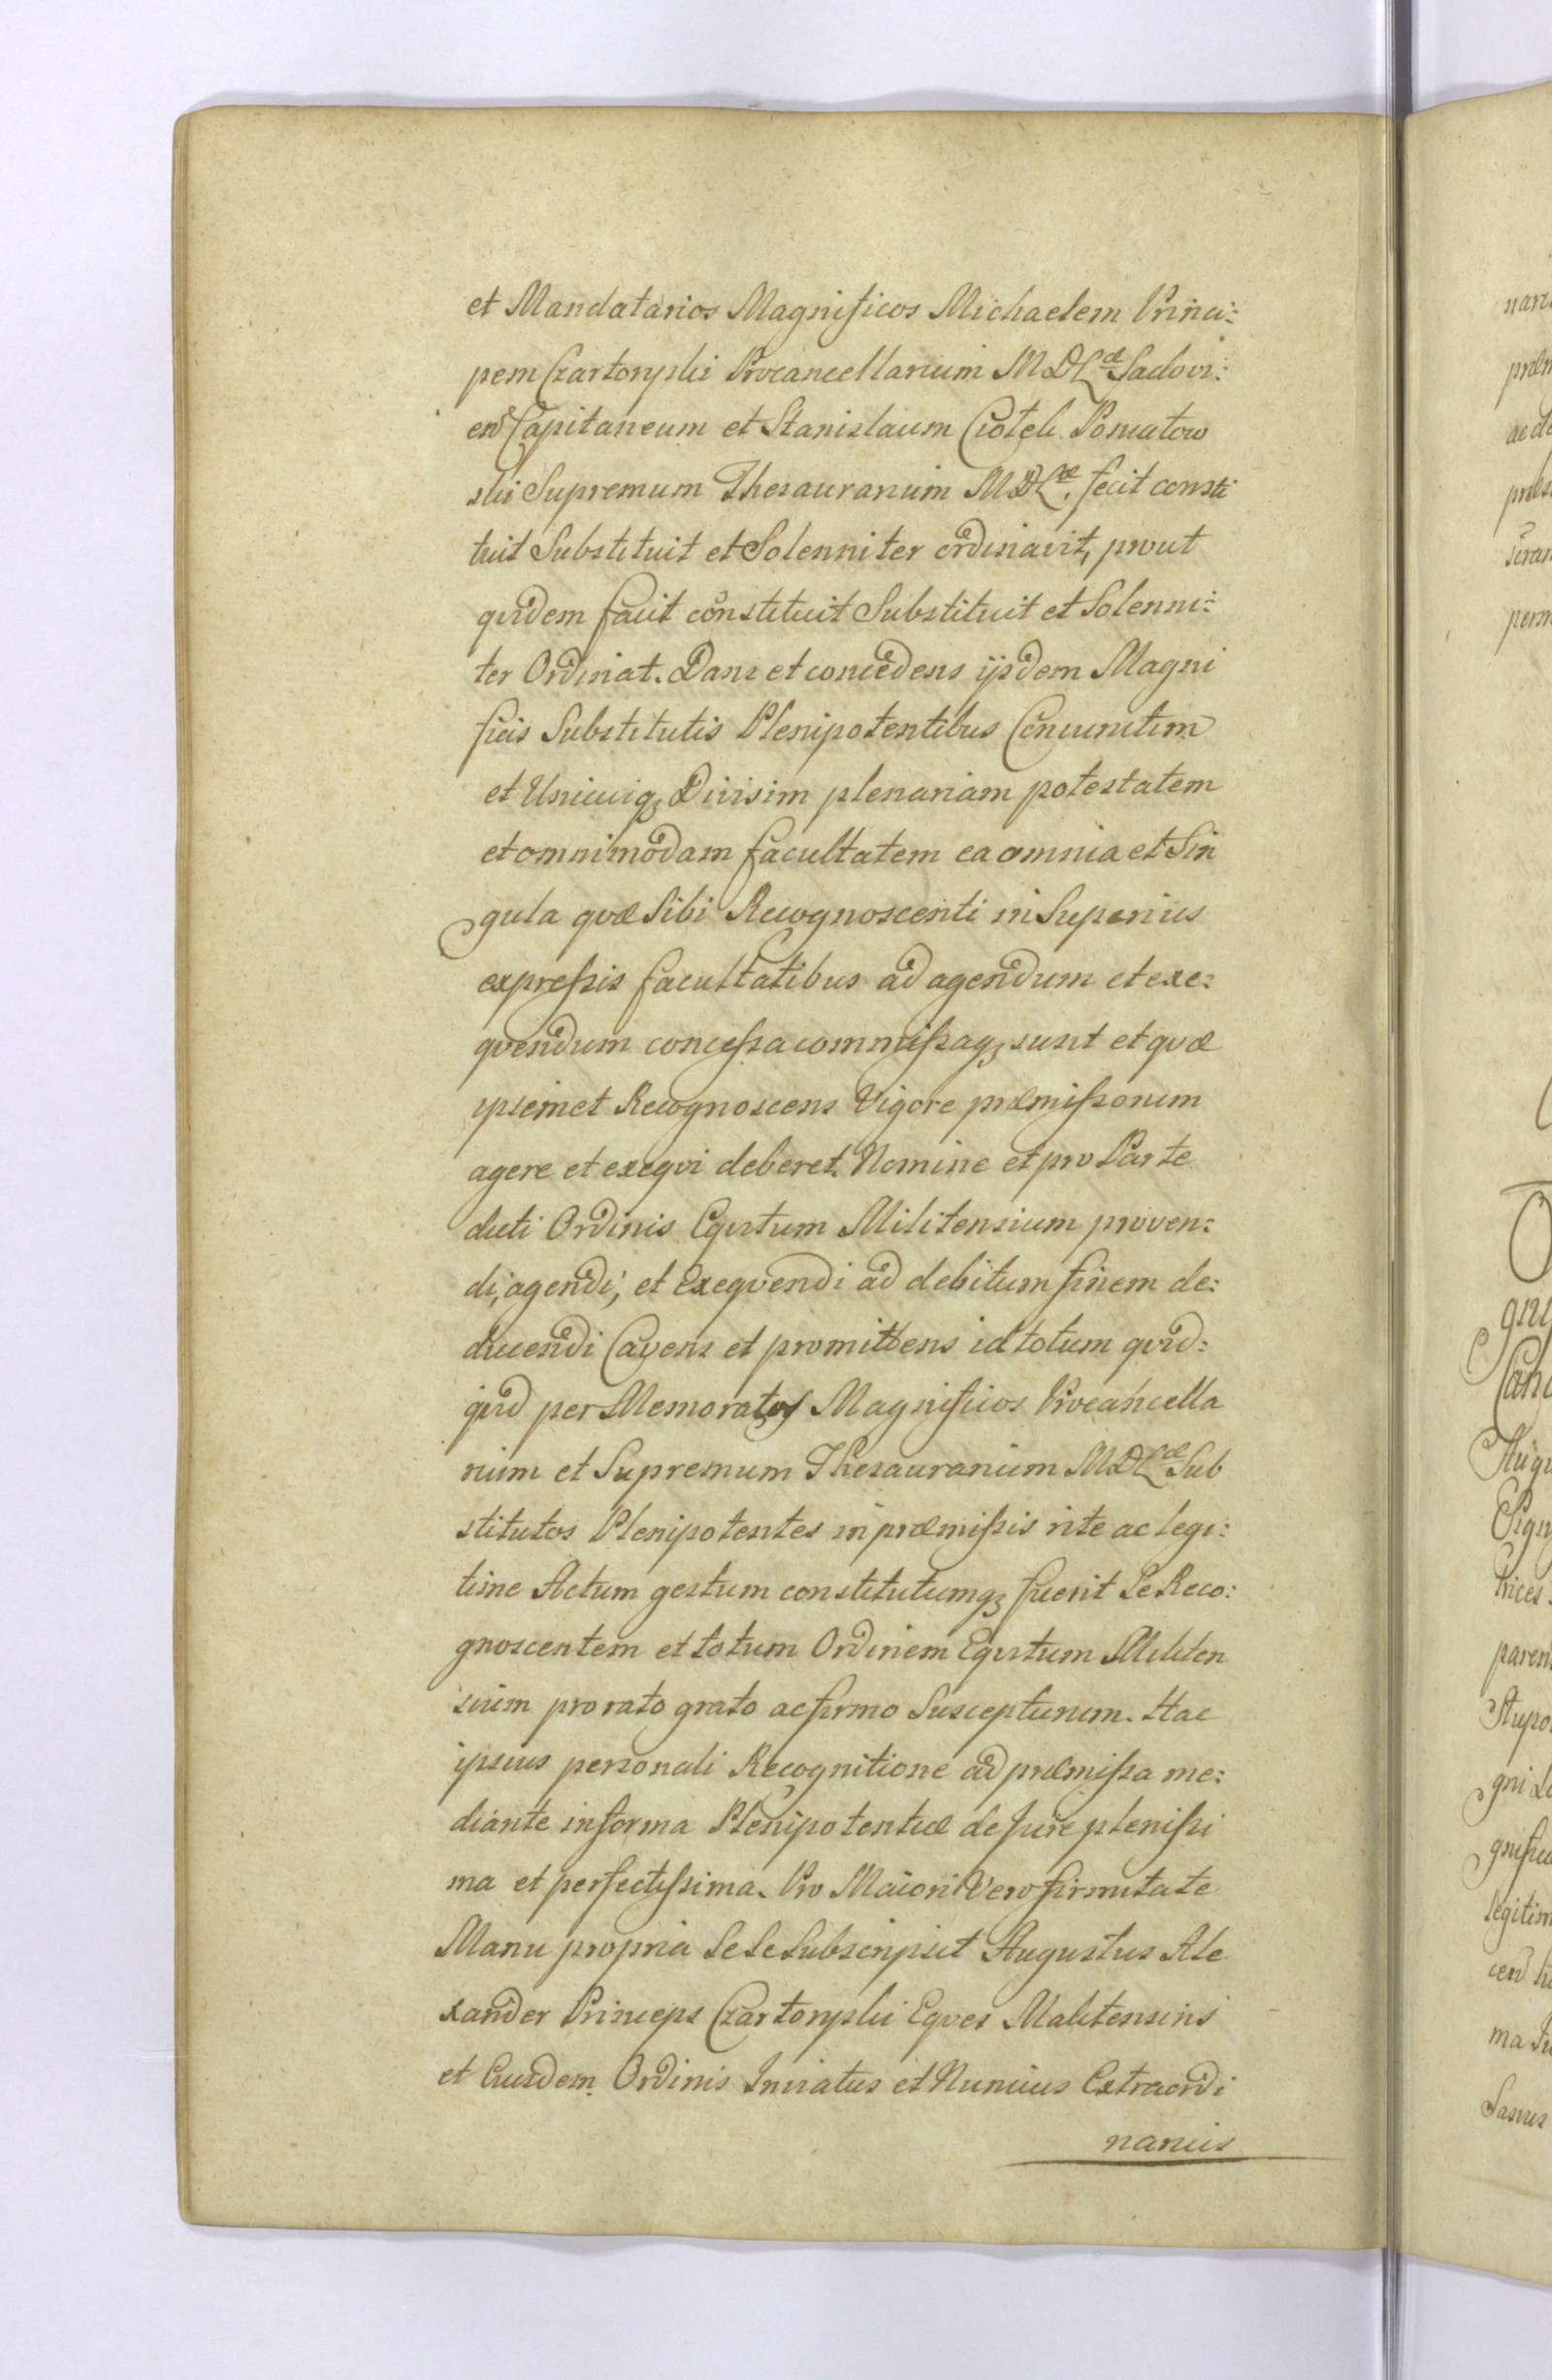 et Mandatarios Magnificos Michaelem Princi:
pem Czartoryski Procancellarium MDLæ Sadovi:
en Capitaneum et Stanislaum Ciołek Poniatow
ski Supremum Thesaurarium MDLæ. fecit consti
tuit Substituit et Solenniter ordinavit, prout
quidem facit constituit Substituit et Solenni:
ter Ordinat. Dans et concedens ijsdem Magni
ficis Substitutis Plenipotentibus Coniunctim
et Unicuiq; Divisim plenariam potestatem
et omnimodam facultatem ea omnia et Sin
gula qvæ Sibi Recognoscenti in Superius
expressis facultatibus ad agendum et exe:
qvendum concessa commissaq; sunt et qvæ
ipsemet Recognoscens Vigore præmissorum
agere et exeqvi deberet. Nomine et pro Parte
dicti Ordinis Eqvitum Militensium proven:
di, agendi, et Exeqvendi ad debitum finem de:
ducendi Cavens et promittens id totum qvid:
qvid per Memoratos Magnificos Procancella
rium et Supremum Thesaurarium MDLæ Sub
stitutos Plenipotentes in præmissis rite ac legi:
time Actum gestum constitutumq; fuerit Se Reco:
gnoscentem et totum Ordinem Eqvitum Meliten
sium pro rato grato ac firmo Suscepturum. Hac
ipsius personali Recognitione ad præmissa me:
diante in forma Plenipotentiæ de Jure plenissi
ma et perfectissima. Pro Maiori Vero firmitate
Manu propria Se Se Subscripsit Augustus Ale
xander Princeps Czartoryski Eqves Malitensis
et Eiusdem Ordinis Inviatus et Nuncius Extraordi
narius